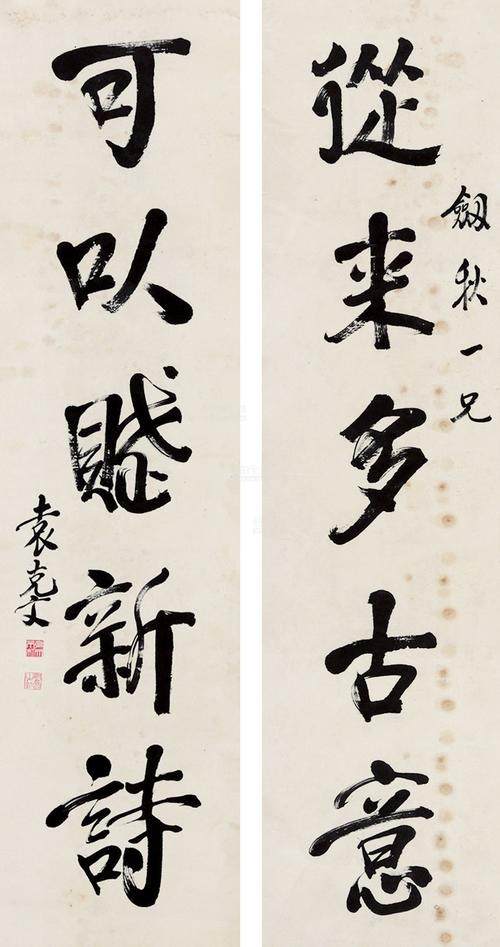 劔秋一兄
從来多古意
可以賦新詩
袁克文